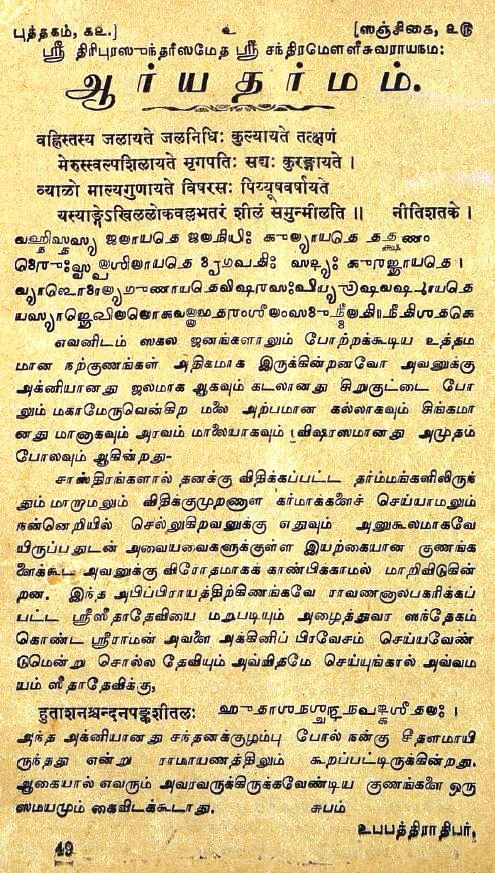 புத்தகம், கஉ.] உ [ஸஞ்சிகை, உரு
ஸ்ரீ திரிபுரஸுந்தரீஸமேத ஸ்ரீ சந்திரமௌளீசுவராயநம:
ஆர்யதர்மம்.
वह्निस्तस्य जलायते जलनिधिः कुल्यायते तत्क्षणं
मेरुस्स्वल्पशिलायते मृगपतिः सद्यः कुरङ्गायते ।
व्यालो माल्यगुणायते विषरसः पिय्यूषवर्षायते
यस्याङ्गेऽखिललोकवल्लभतरं शीलं समुन्मीलति ॥ नीतिशतके ।
எவனிடம் ஸகல ஜனங்களாலும் போற்றக்கூடிய உத்தம
மான நற்குணங்கள் அதிகமாக இருக்கின்றனவோ அவனுக்கு
அக்னியானது ஜலமாக ஆகவும் கடலானது சிறுகுட்டை போ
லும் மகாமேருவென்கிற மலை அற்பமான கல்லாகவும் சிங்கமா
னது மானாகவும் அரவம் மாலையாகவும் விஷரஸமானது அமுதம்
போலவும் ஆகின்றது-
சாஸ்திரங்களால் தனக்கு விதிக்கப்பட்ட தர்ம்மங்களிலிருந்
தும் மாறாமலும் விதிக்குமுரணான கர்மாக்களைச் செய்யாமலும்
நன்னெறியில் செல்லுகிறவனுக்கு எதுவும் அனுகூலமாகவே
யிருப்பதுடன் அவையவைகளுக்குள்ள இயற்கையான குணங்க
ளைக்கூட அவனுக்கு விரோதமாகக் காண்பிக்காமல் மாறிவிடுகின்
றன. இந்த அபிப்பிராயத்திற்கிணங்கவே ராவணனாலபகரிக்கப்
பட்ட ஸ்ரீஸீதாதேவியை மறுபடியும் அழைத்துவர ஸந்தேகம்
கொண்ட ஸ்ரீராமன் அவளை அக்கினிப் பிரவேசம் செய்யவேண்
டுமென்று சொல்ல தேவியும் அவ்விதமே செய்யுங்கால் அவ்வம
யம் ஸீதாதேவிக்கு,
हुताशनश्चन्दनपङ्कशीतलः
அந்த அக்னியானது சந்தனக்குழம்பு போல் நன்கு சீதளமாயி
ருந்தது என்று ராமாயணத்திலும் கூறப்பட்டிருக்கின்றது.
ஆகையால் எவரும் அவரவருக்கிருக்கவேண்டிய குணங்களை ஒரு
ஸமயமும் கைவிடக்கூடாது. சுபம்
உபபத்திராதிபர்.
49